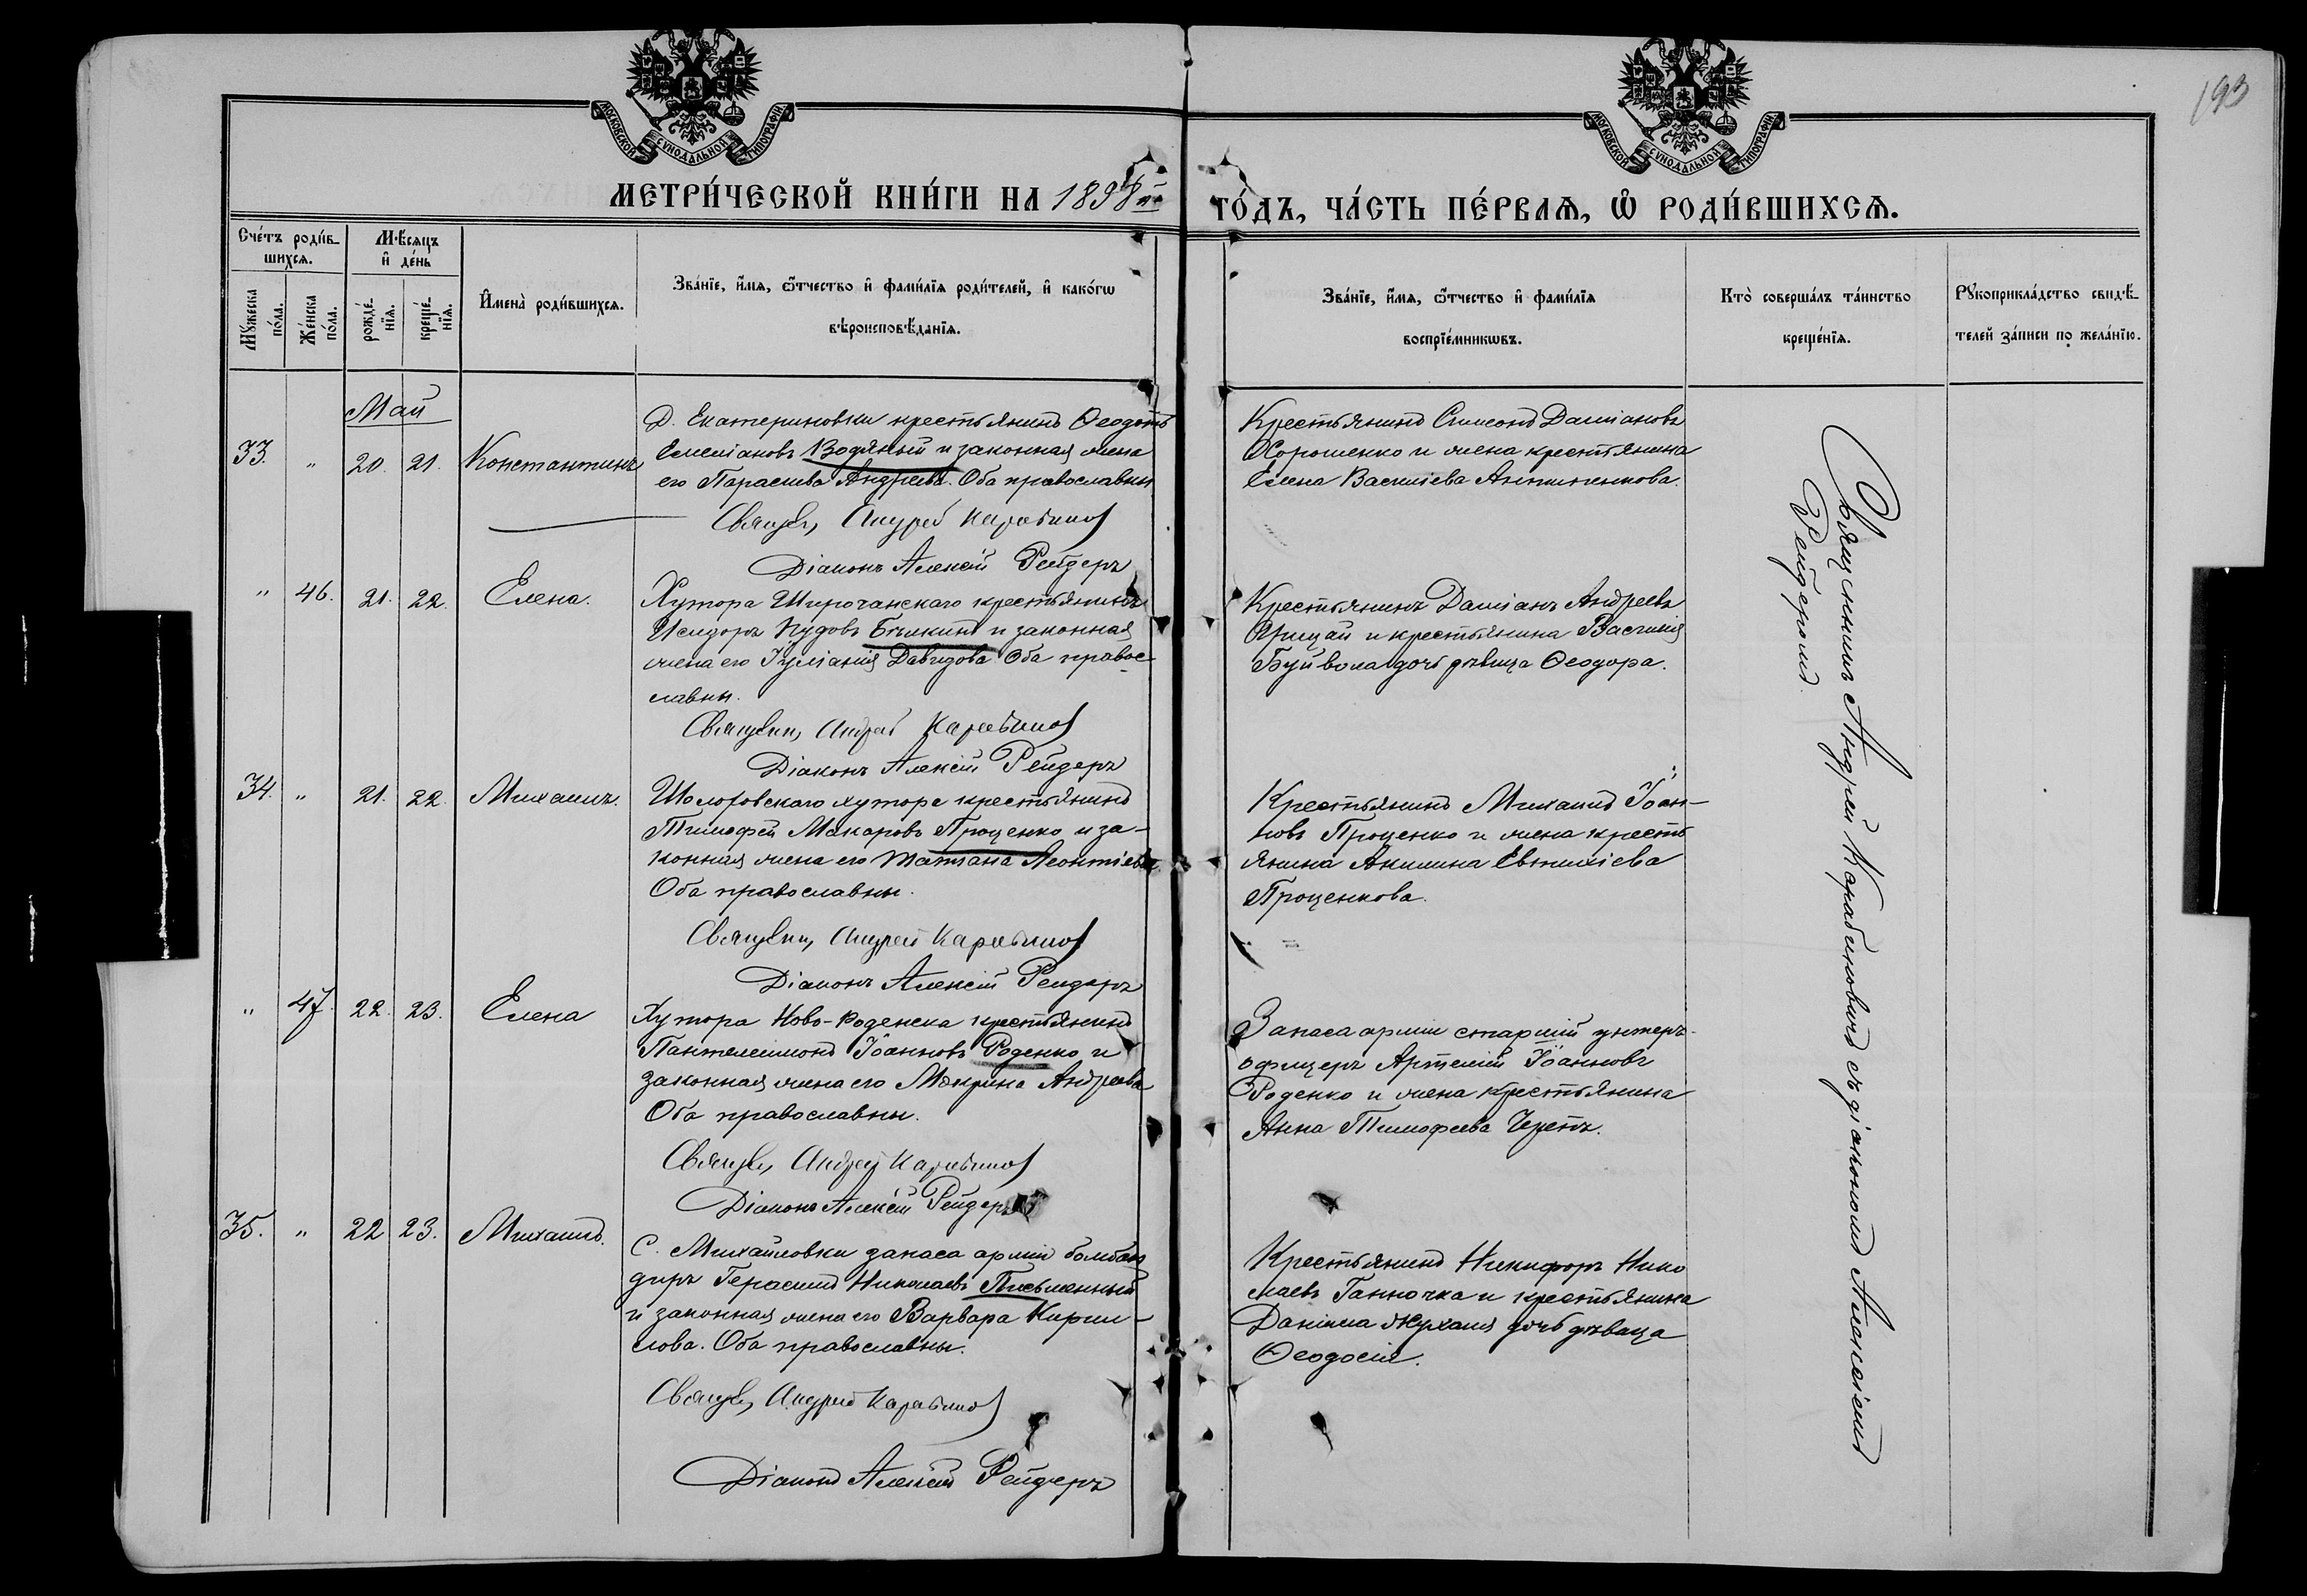 193
МОСКОВСКОЙ СУНОДАЛЬНОЙ ТИПОГРАФІИ
МОСКОВСКОЙ СУНОДАЛЬНОЙ ТИПОГРАФІИ
МЕТРИ́ЧЕСКОЙ КНИ́ГИ НА 1898й
ГО́ДЪ, ЧА́СТЬ ПЕ́РВАѦ, Ѡ҆ РОДИ́ВШИХСѦ.
Сче́тъ роди́в-
шихсѧ.
Мꙋ́жеска
по́ла.
Же́нска
по́ла.
Мѣ́сѧцъ
и҆ де́нь
рожде́-
нїѧ.
креще́-
нїѧ.
И҆мена̀ роди́вшихсѧ.
Зва́нїе, и҆́мѧ, ѻ҆́тчество и҆ фами́лїѧ роди́телей, и҆ како́гѡ
вѣроисповѣ́данїѧ.
Зва́нїе, и҆́мѧ, ѻ҆́тчество и҆ фами́лїѧ
воспрїе́мникѡвъ.
Кто̀ соверша́лъ та́инство
креще́нїѧ.
Рꙋкоприкла́дство свидѣ́-
телей за́писи по жела́нїю.
Май
33. " 20. 21. Константинъ
Д. Екатериновки крестьянинъ Ѳеодотъ
Емеліановъ Водяный и законная жена
его Параскева Андреева. Оба православны
Священ, Андрей Карабинов
Діаконъ Алексій Рейдеръ
Крестьянинъ Симеонъ Даміановъ
Хорошенко и жена крестьянина
Елена Василіева
" 46. 21. 22. Елена.
Хутора Широчанскаго крестьянинъ
Исидоръ Нудовъ и законная
жена его Іуліанія Давидова Оба право-
славны.
Священн, Андрей Карабинов
Діаконъ Алексій Рейдеръ
Крестьянинъ Даміанъ Андреевъ
и крестьянина Василія
Буйвола дочь дѣвица Ѳеодора.
34. " 21. 22. Михаилъ.
хутора крестьянинъ
Тимофей Макаровъ Проценко и за-
конная жена его Татіана Леонтіева
Оба православны.
Священн, Андрей Карабинов
Діаконъ Алексій Рейдеръ
Крестьянинъ Михаилъ Іоан-
новъ Проценко и жена кресть
янина Акилина Евтихіева
Проценкова.
" 47. 22. 23. Елена
Хутора Ново-Роденска крестьянинъ
Пантелеимонъ Іоанновъ Роденко и
законная жена его Макрина Андреева
Оба православны.
Священ, Андрей Карабинов
Діаконъ Алексій Рейдеръ
Запаса арміи старшій унтеръ-
офицеръ Артемій Іоанновъ
Роденко и жена крестьянина
Анна Тимофеева
35. " 22 23. Михаилъ.
С. Михайловки запаса арміи бомбар
диръ Герасимъ Николаевъ Письменный
и законная жена его Варвара Кирил-
лова. Оба православны.
Священ, Андрей Карабинов
Діаконъ Алексій Рейдеръ
Крестьянинъ Никифоръ Нико
лаевъ Ганночка и крестьянина
Даніила дочь дѣвица
Ѳеодосія.
Священникъ Андрей Карабиновичъ съ діакономъ Алексіемъ
Рейдеромъ.